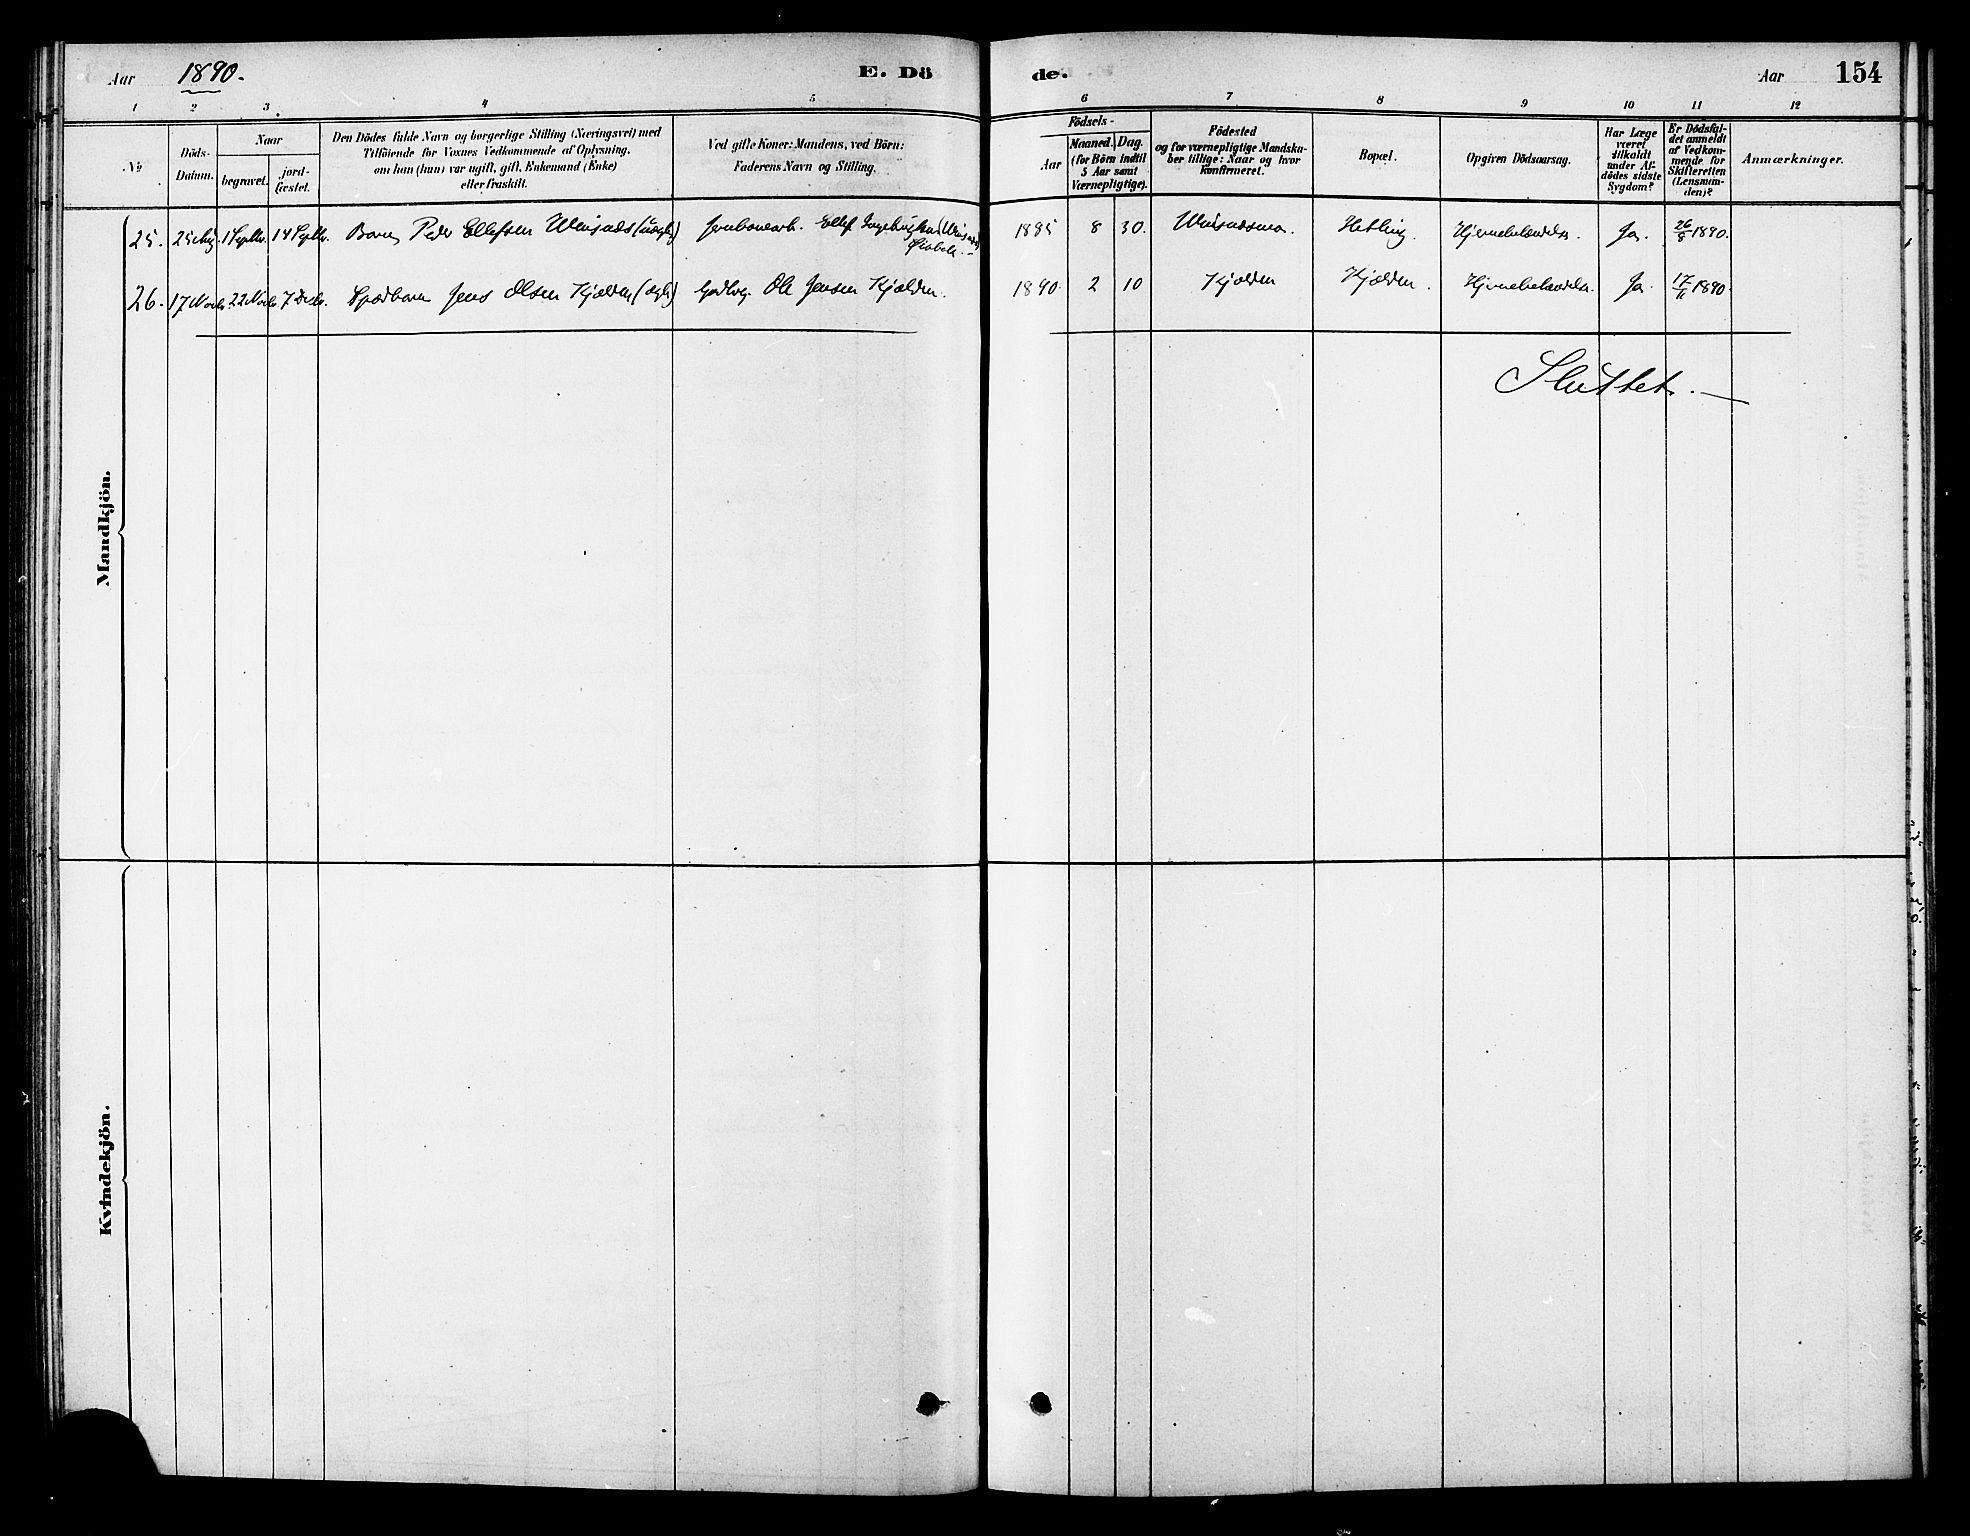 Aar 1890. E. Dö de. Aar 154
1 2 3 4 5 6 7 8 9 10 11 12
No
Döds-
Datum.
Naar
begravet.
jord-
fæstet.
Den Dödes fulde Navn og borgerlige Stilling (Næringsvei) med
Tilföiende for Voxnes Vedkommende af Oplysning,
om han (hun) var ugift, gift, Enkemand (Enke)
eller fraskilt.
Ved gifte Koner: Mandens, ved Börn:
Faderens Navn og Stilling.
Födsels-
Aar
Maaned. Dag.
(for Börn indtil
5 Aar samt
Værnepligtige).
Födested
og for værnepligtige Mandska-
ber tillige: Naar og hvor
konfirmeret.
Bopæl.
Opgiven Dödsaarsag.
Har Læge
været
tilkaldt
under Af-
dödes sidste
Sygdom?
Er Dödsfal-
det anmeldt
af Vedkom-
mende for
Skifteretten
(Lensman-
den)?
Anmærkninger.
Mandkjön.
25. 25 Aug. 1 Septbr. 14 Septbr. Barn Peder Ellefsen (uægte) Jernbanearb. Ellef 1885 8 30. Hetling. Hjernebetændelse. Ja. 26/8 1890.
26. 17 Novbr. 22 Novbr. 7 Decbr. Spædbarn Jens Olsen Kjelden (ægte) Gaardbrg. Ole Jensen Kjelden. 1890. 2 10 Kjelden Kjelden. Hjernebetændelse. Ja. 17/11 1890.
Sluttet.
Kvindekjön.